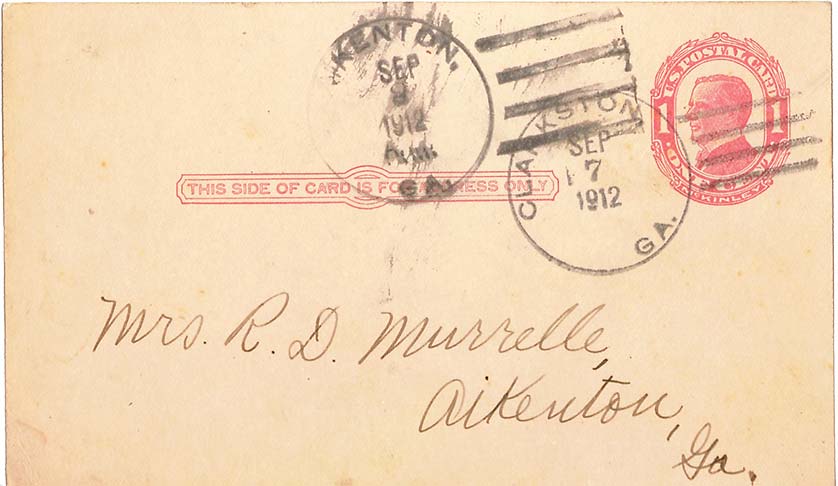 KENTON,
SEP
9
1912
A.M.
GA.
CLARKSTON
SEP
7
1912
GA.
U.S. POSTAL CARD
1 1
McKINLEY
THIS SIDE OF CARD IS FOR ADDRESS ONLY
Mrs. R. D. Murrelle,
Aikenton,
Ga.